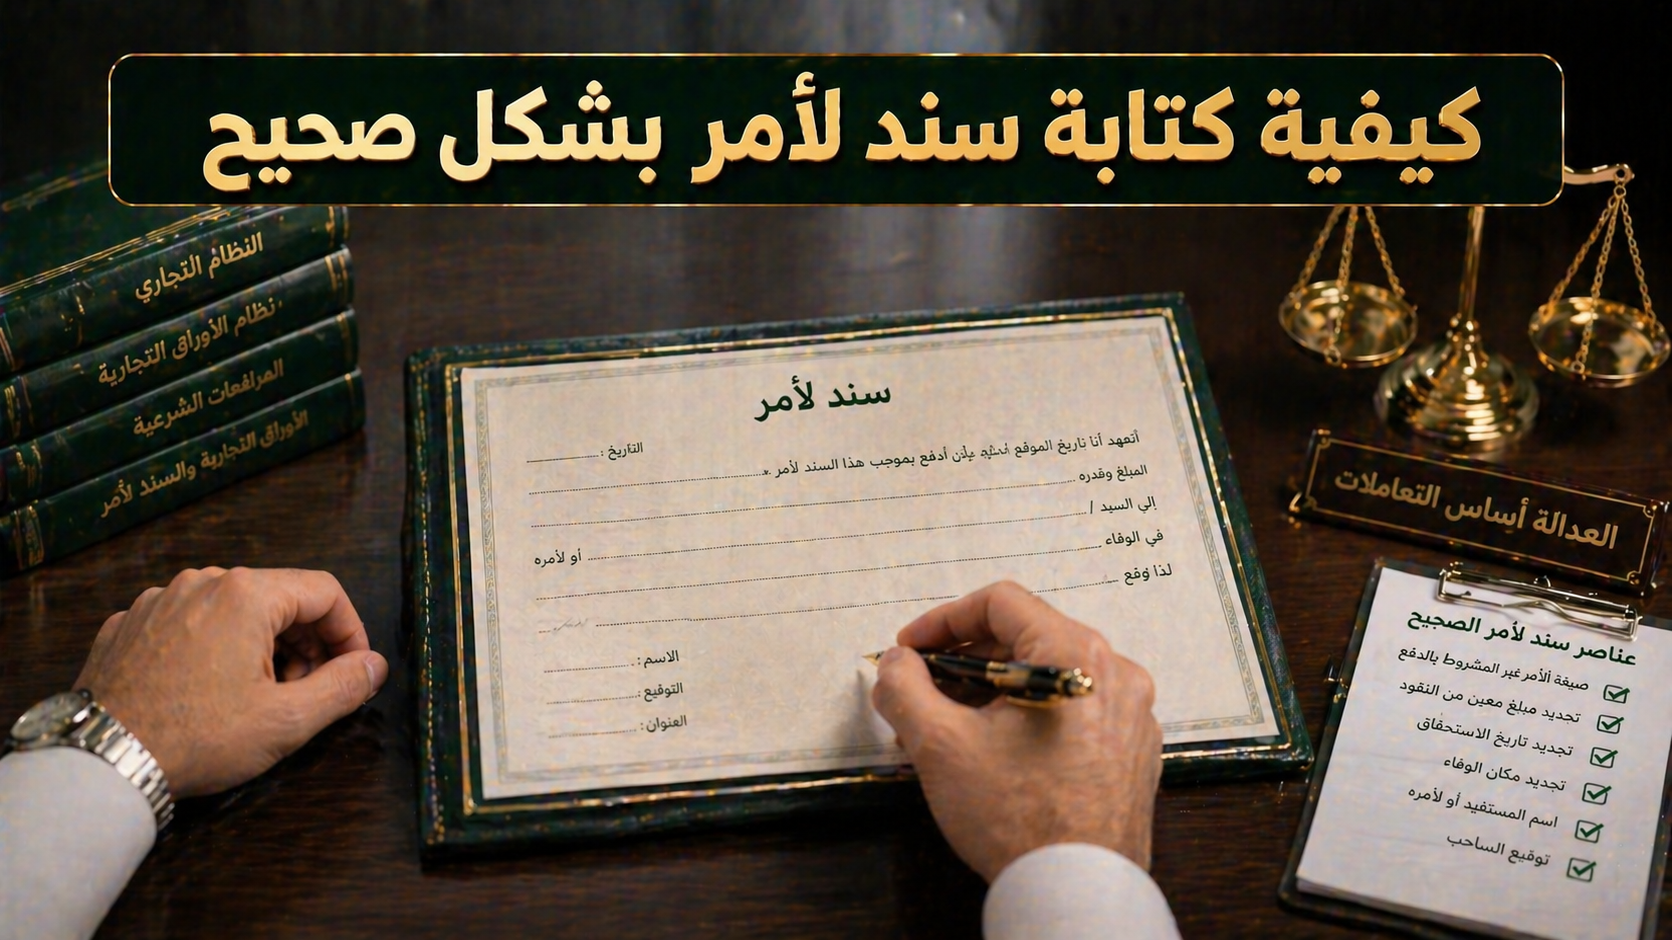 كيفية كتابة سند لأمر بشكل صحيح
النظام التجاري
نظام الأوراق التجارية
المرافعات الشرعية
الأوراق التجارية والسند لأمر
سند لأمر
التاريخ :
أتعهد أنا تاريخ الموقع بأن أدفع بموجب هذا السند لأمر
المبلغ وقدره
إلى السيد /
أو لأمره
في الوفاء
لذا وقع
الاسم :
التوقيع :
العنوان :
العدالة أساس التعاملات
عناصر سند لأمر الصحيح
صيغة الأمر غير المشروط بالدفع
تحديد مبلغ معين من النقود
تحديد تاريخ الاستحقاق
تحديد مكان الوفاء
اسم المستفيد أو لأمره
توقيع الساحب